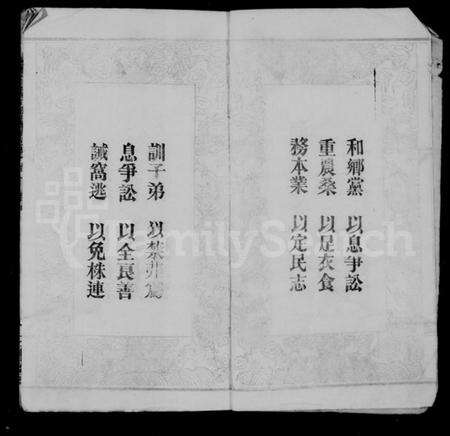 和鄉黨 以息爭訟
重農桑 以足衣食
務本業 以定民志
訓子弟 以禁非為
息爭訟 以全良善
誡窩逃 以免株連
FamilySearch